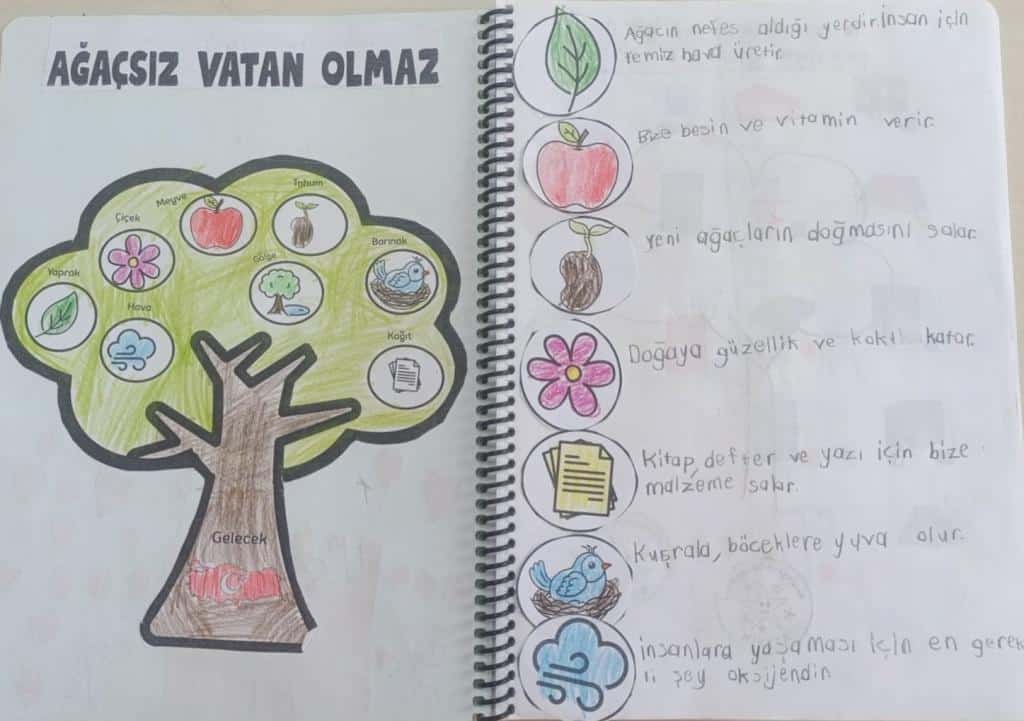 AĞAÇSIZ VATAN OLMAZ
Tohum
Meyve
Çiçek
Barınak
Gölge
Yaprak
Hava
Kağıt
Gelecek
Ağacın nefes aldığı yerdir.İnsan için
temiz hava üretir.
Bize besin ve vitamin verir.
Yeni ağaçların doğmasını salar.
Doğaya güzellik ve kokı katar.
Kitap, defter ve yazı için bize
malzeme salar.
Kuşrala, böceklere yuva olur.
İnsanlara yaşaması için en gerek
li şey oksijendin